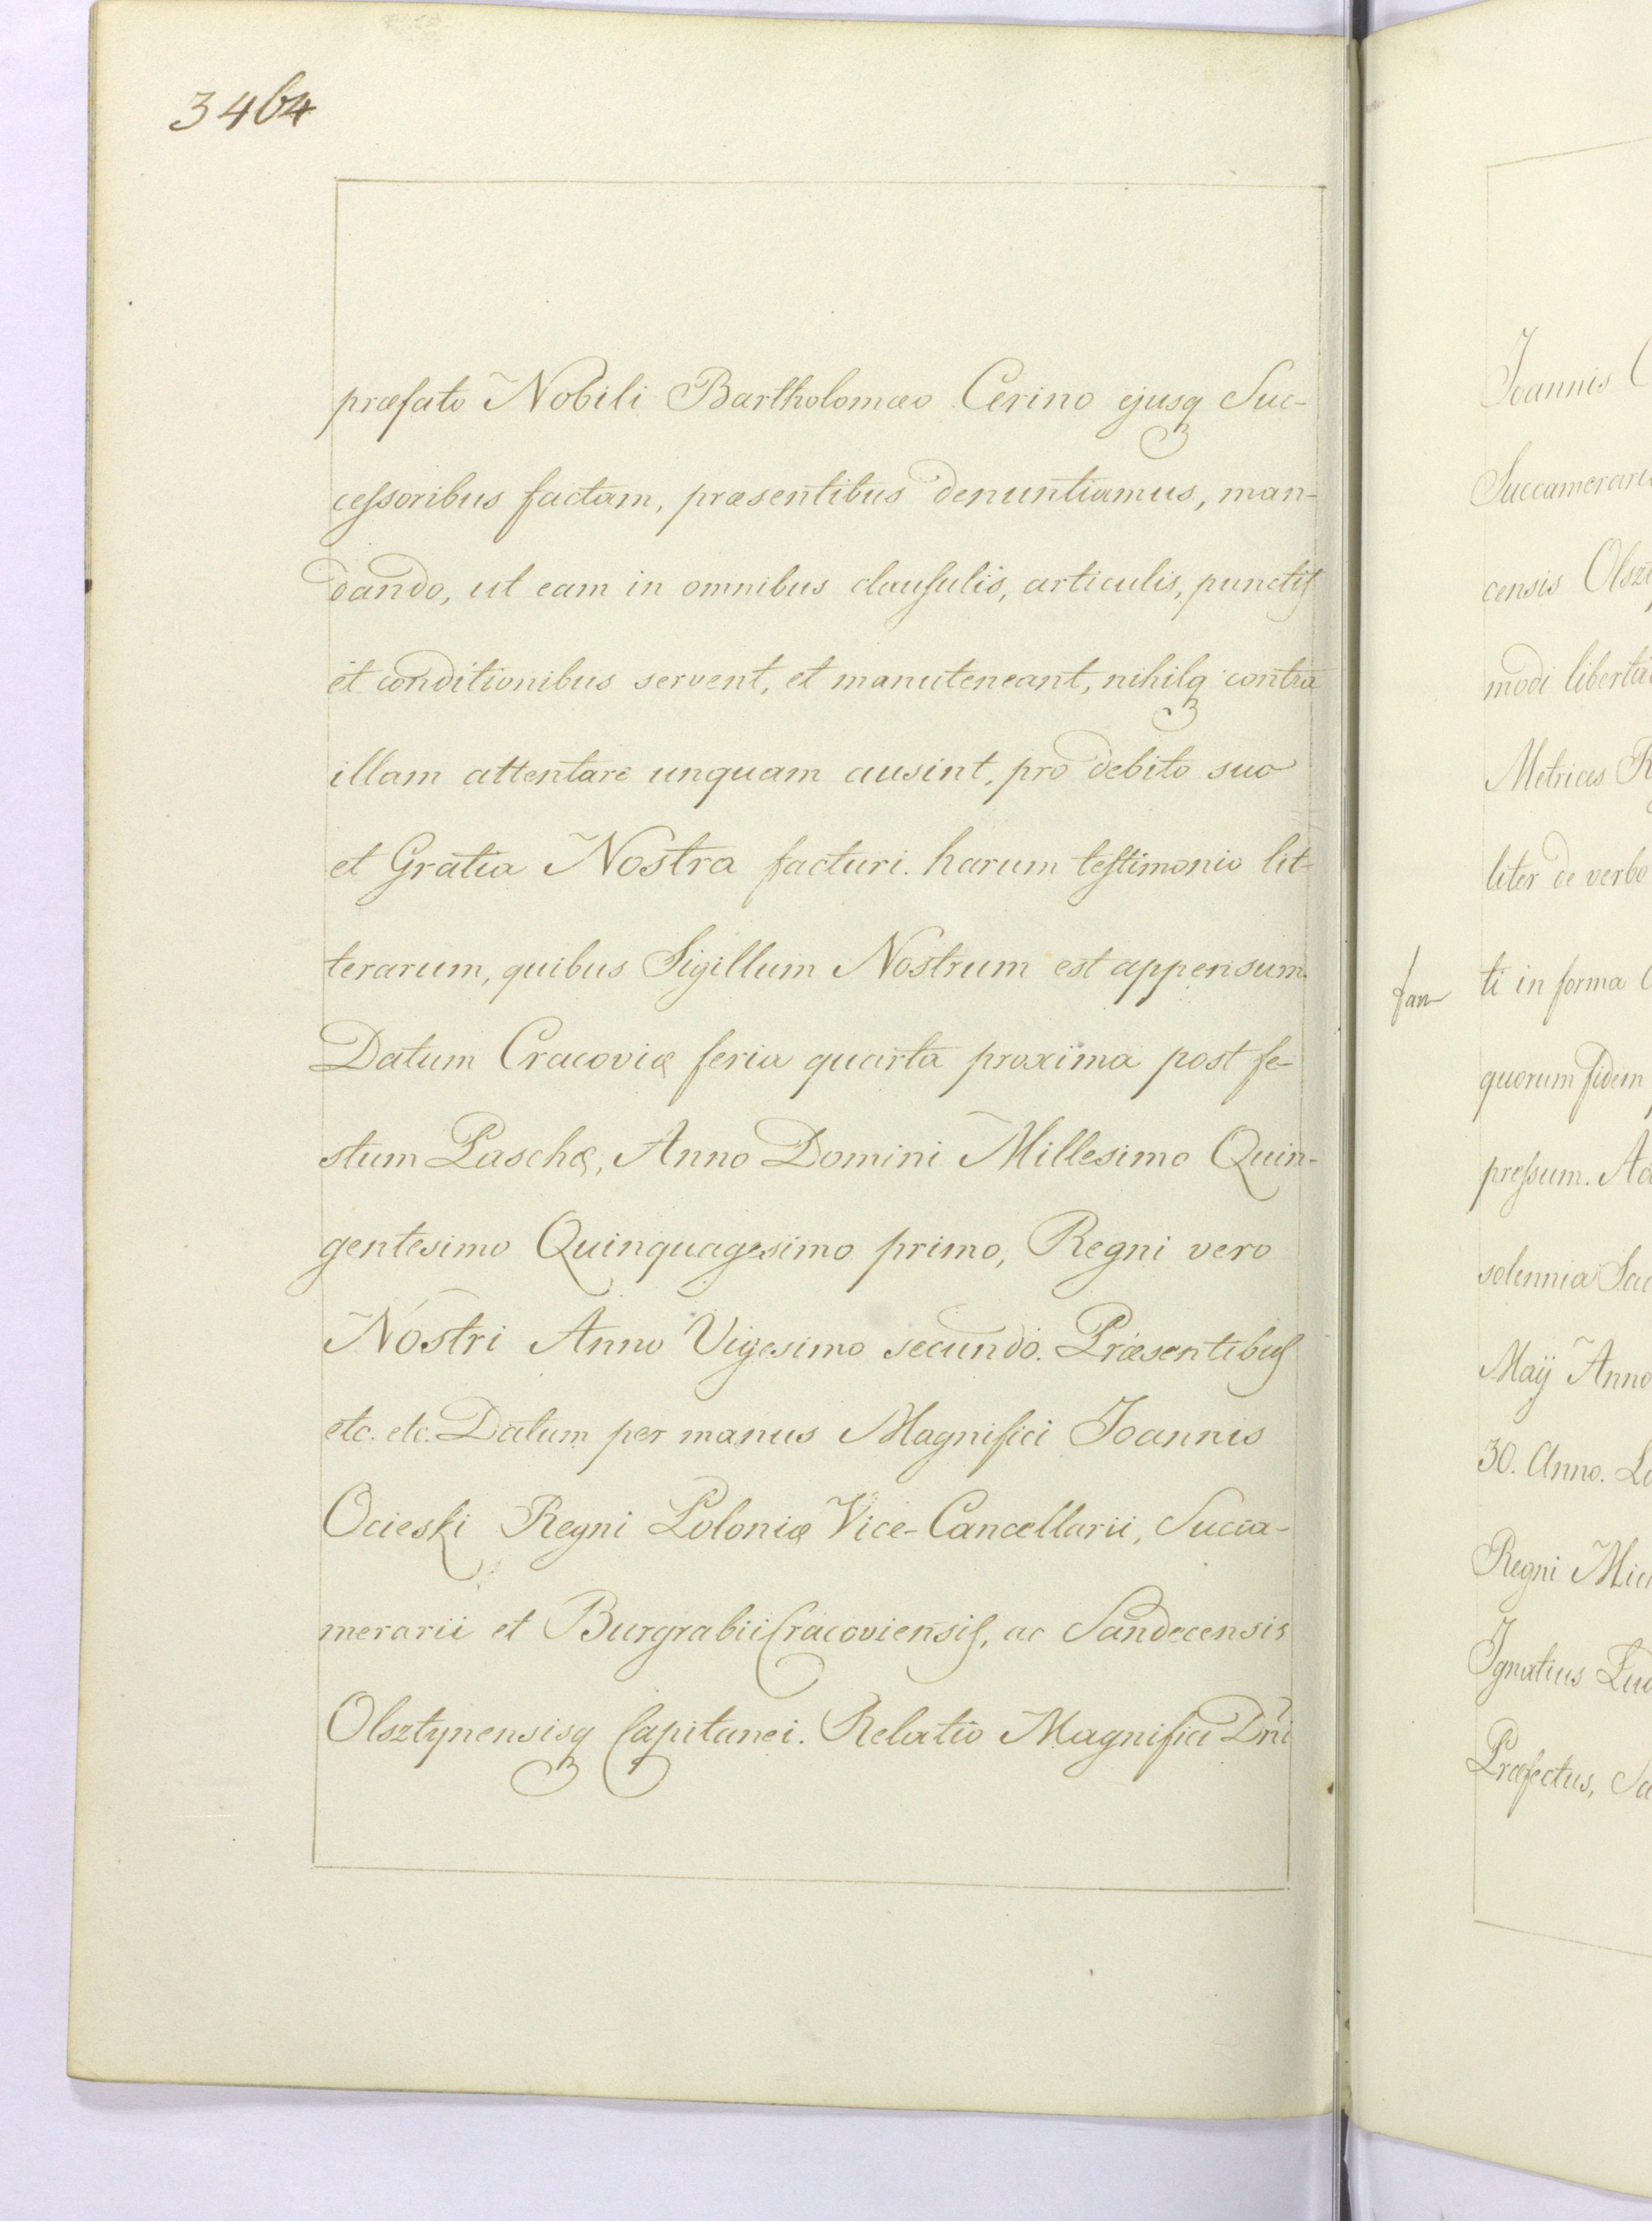 3464
præfato Nobili Bartholomæo Cerino ejusq₃ Suc-
cessoribus factam, præsentibus denuntiamus, man-
dando, ut eam in omnibus clausulis, articulis, punctis
et conditionibus servent, et manuteneant, nihilq₃ contra
illam attentare unquam ausint, pro debito suo
et Gratia Nostra facturi. harum testimonio lit-
terarum, quibus Sigillum Nostrum est appensum.
Datum Cracoviæ feria quarta proxima post fe-
stum Paschæ, Anno Domini Millesimo Quin-
gentesimo Quinquagesimo primo, Regni vero
Nostri Anno Vigesimo secundo. Præsentibus
etc. etc. Datum per manus Magnifici Joannis
Ocieski Regni Poloniæ Vice-Cancellarii, Succa-
merarii et Burgrabii Cracoviensis, ac Sandecensis
Olsztynensisq₃ Capitanei. Relatio Magnifici Dni
Joannis
Succamerari
censis Olszt
modi liberta
Metrices R
liter de verbo
ti in forma
quorum fidem
pressum. Ac
solennia Sac
Maÿ Anno
30. Anno. Lo
Regni Mie
Ignatius Lud
Præfectus, Sa